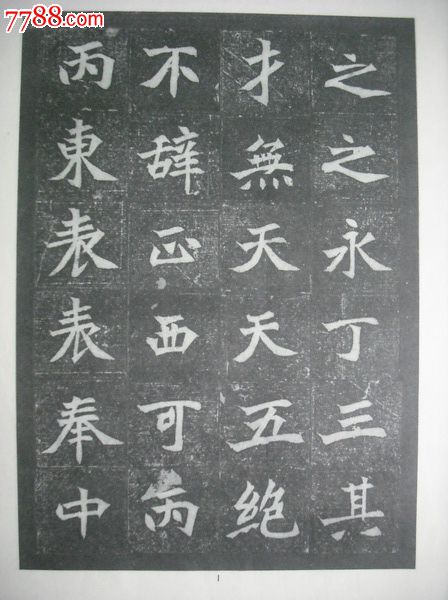 7788.com
之之永丁三其
才無天天五絶
不辞正西可丙
丙東表表奉中
1